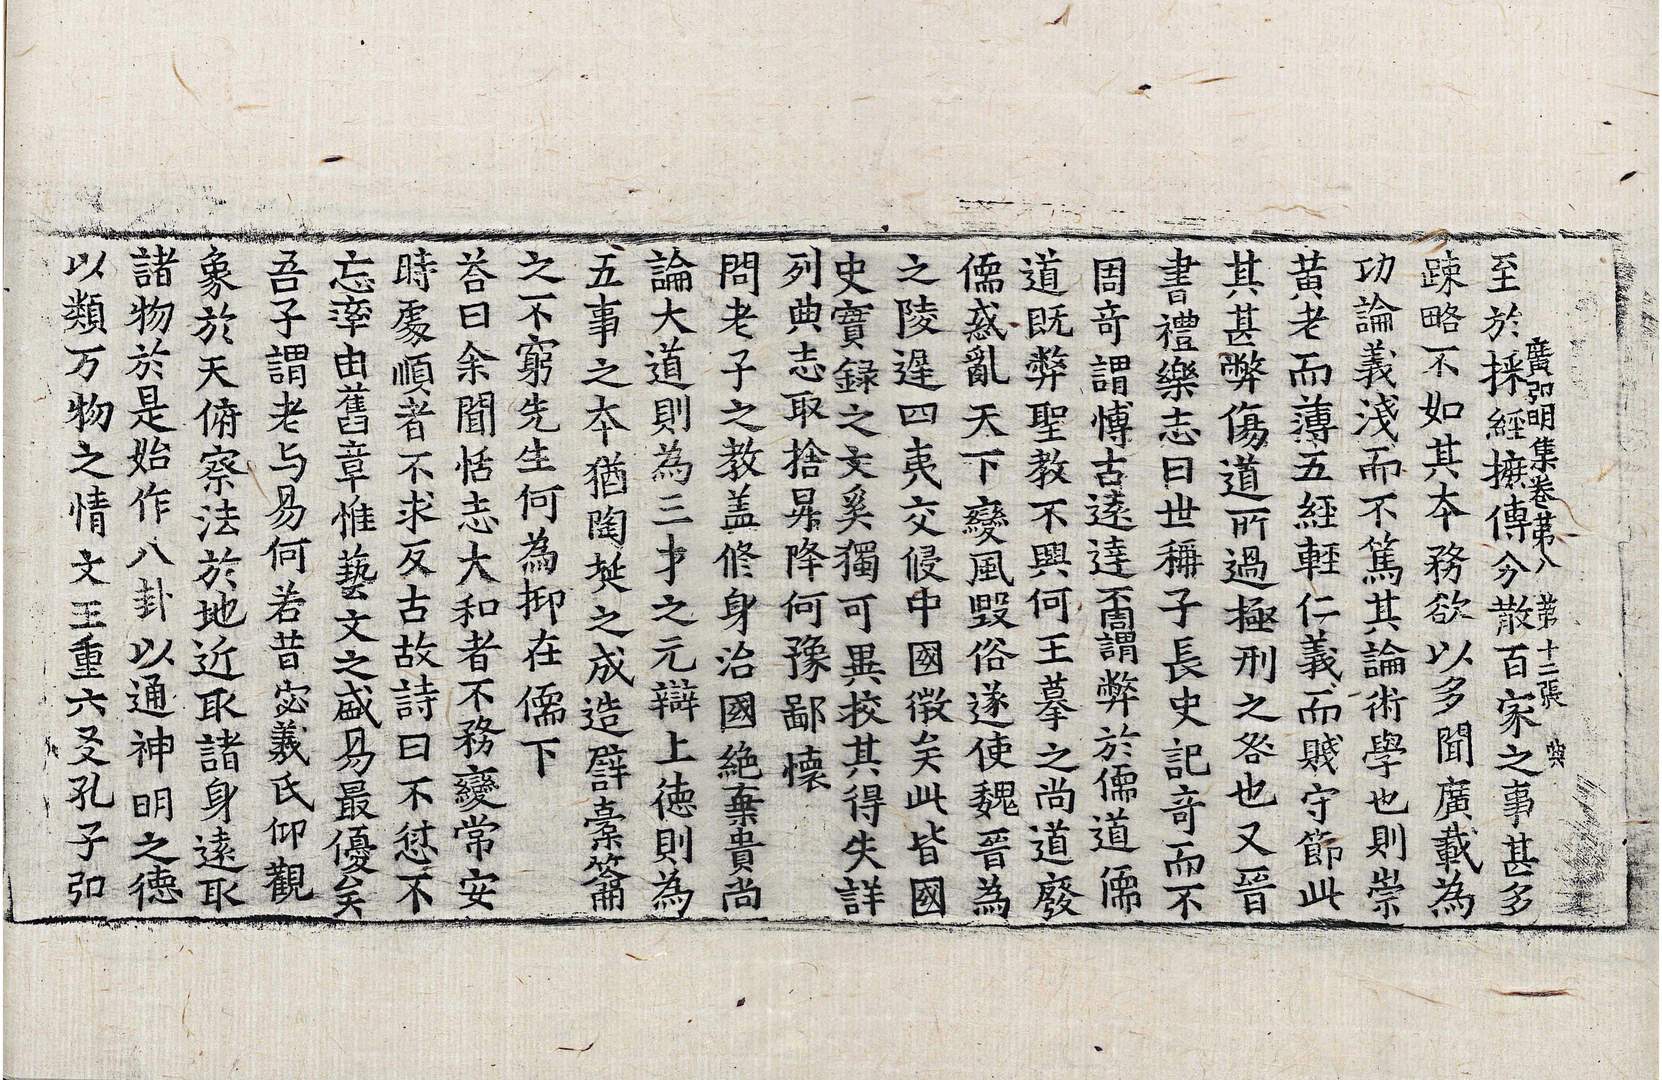 廣弘明集卷第八 第十二張 典
至於採經摭傳分散百家之事甚多
踈略不如其本務欲以多聞廣載為
功論義淺而不篤其論術學也則崇
黃老而薄五經輕仁義而賤守節此
其甚弊傷道所過極刑之咎也又晉
書禮樂志曰世稱子長史記奇而不
周奇謂愽古遠達不周謂弊於儒道儒
道既弊聖教不興何王摹之尚道廢
儒惑亂天下變風毀俗遂使魏晉為
之陵遲四夷交侵中國微矣此皆國
史實錄之文奚獨可異挍其得失詳
列典志取捨昇降何豫鄙懷
問老子之教盖修身治國絕棄貴尚
論大道則為三才之元辯上德則為
五事之本猶陶埏之成造譬橐籥
之不窮先生何為抑在儒下
荅曰余聞恬志大和者不務變常安
時處順者不求反古故詩曰不愆不
忘率由舊章惟藝文之盛易最優矣
吾子謂老与易何若昔宓羲氏仰觀
象於天俯察法於地近取諸身遠取
諸物於是始作八卦以通神明之德
以類万物之情文王重六爻孔子弘